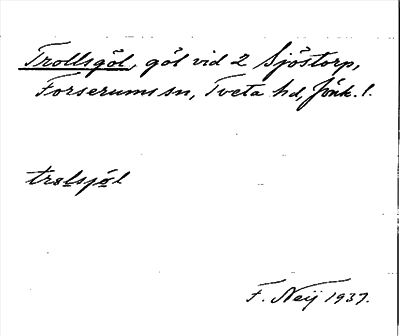 Trollsgöl, göl vid 2 Sjöstorp,
Forserums sn, Tveta hd, Jönk. l.
trolsjöl
F. Neij 1937.